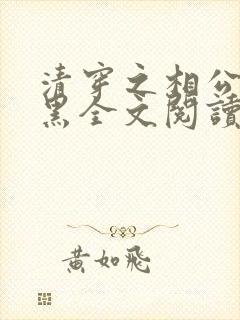 清穿之相公
黑全文閱讀
黃如飛